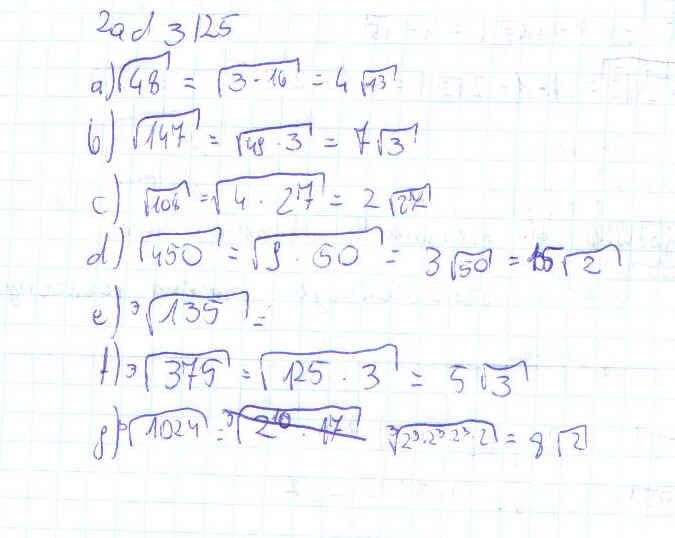 Zad 3/125
a) √48 = √3·16 = 4√3
b) √147 = √49·3 = 7√3
c) √108 = √4·27 = 2√27
d) √450 = √9·50 = 3√50 = 15√2
e) ³√135 =
f) ³√375 = √125·3 = 5√3
g) ³√1024 = ³√2¹⁰·√7 ³√2³·2³·2³·2 = 8√2